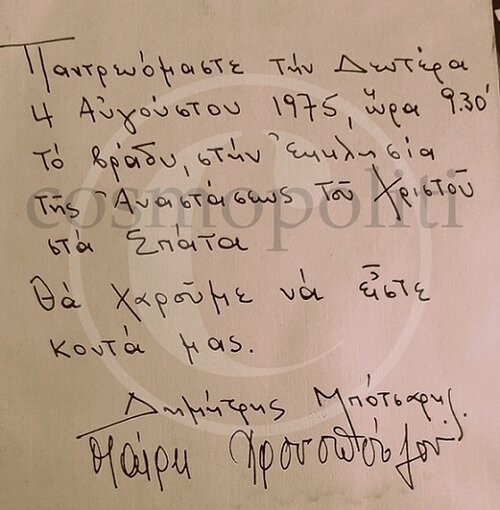 Παντρευόμαστε τήν Δευτέρα
4 Αὐγούστου 1975, ὥρα 9.30'
τό βράδυ, στήν Ἐκκλησία
τῆς Ἀναστάσεως τοῦ Χριστοῦ
cosmopoliti
στά Σπάτα
Θά χαροῦμε νά εἶστε
κοντά μας.
Δημήτρης Μπότσαρης.
Μαίρη Χρονοπούλου